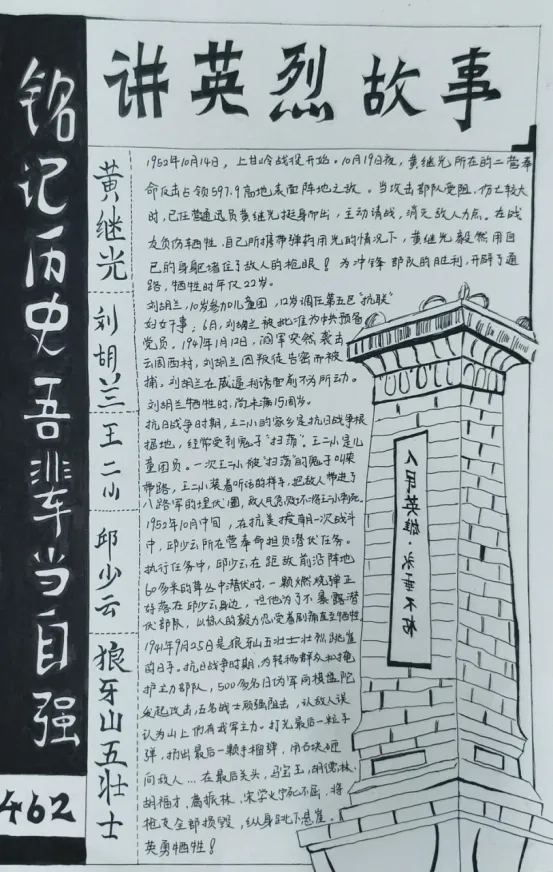 讲英烈故事
铭记历史吾辈当自强
462
黄继光
1952年10月14日，上甘岭战役开始。10月19日夜，黄继光所在的二营奉
命反击占领597.9高地表面阵地之敌。当攻击部队受阻，伤亡较大
时，已任营通迅员黄继光挺身而出，主动请战，消灭敌人火点。在战
友负伤牺牲，自己所携带弹药用光的情况下，黄继光毅然用自
己的身躯堵住了敌人的枪眼！为冲锋部队的胜利，开辟了通
路，牺牲时年仅22岁。
刘胡兰
刘胡兰，10岁参加儿童团，12岁调任第五区"抗联"
妇女干事；6月，刘胡兰被批准为中共预备
党员。1947年1月12日，阎军突然袭击
云周西村，刘胡兰因叛徒告密而被
捕。刘胡兰在威逼利诱面前不为所动。
刘胡兰牺牲时，尚未满15周岁。
王二小
抗日战争时期，王二小的家乡是抗日战争根
据地，经常受到鬼子"扫荡"，王二小是儿
童团员。一次王二小被"扫荡"的鬼子叫来
带路，王二小装着听话的样子，把敌人带进了
八路军的埋伏圈，敌人
邱少云
1952年10月中旬，在抗美援朝一次战斗
中，邱少云所在营奉命担负潜伏任务。
执行任务中，邱少云在距敌前沿阵地
60多米的草丛中潜伏时，一颗燃烧弹正
好落在邱少云身边，但他为了不暴露潜
伏部队，以惊人的毅力忍受着剧痛直至牺牲
狼牙山五壮士
1941年9月25日是狼牙山五壮士壮烈跳崖
的日子。抗日战争时期，为转移群众和掩
护主力部队，500多名日伪军向棋盘陀
发起攻击，五名战士顽强阻击，让敌人误
认为山上们有我军主力。打光最后一粒子
弹，扔出最后一颗手榴弹，用石块砸
向敌人...在最后关头，马宝玉，胡德林，
胡福才，葛振林，宋学义宁死不屈，将
枪支全部损毁，纵身跳下悬崖，
英勇牺牲！
人民英雄·永垂不朽